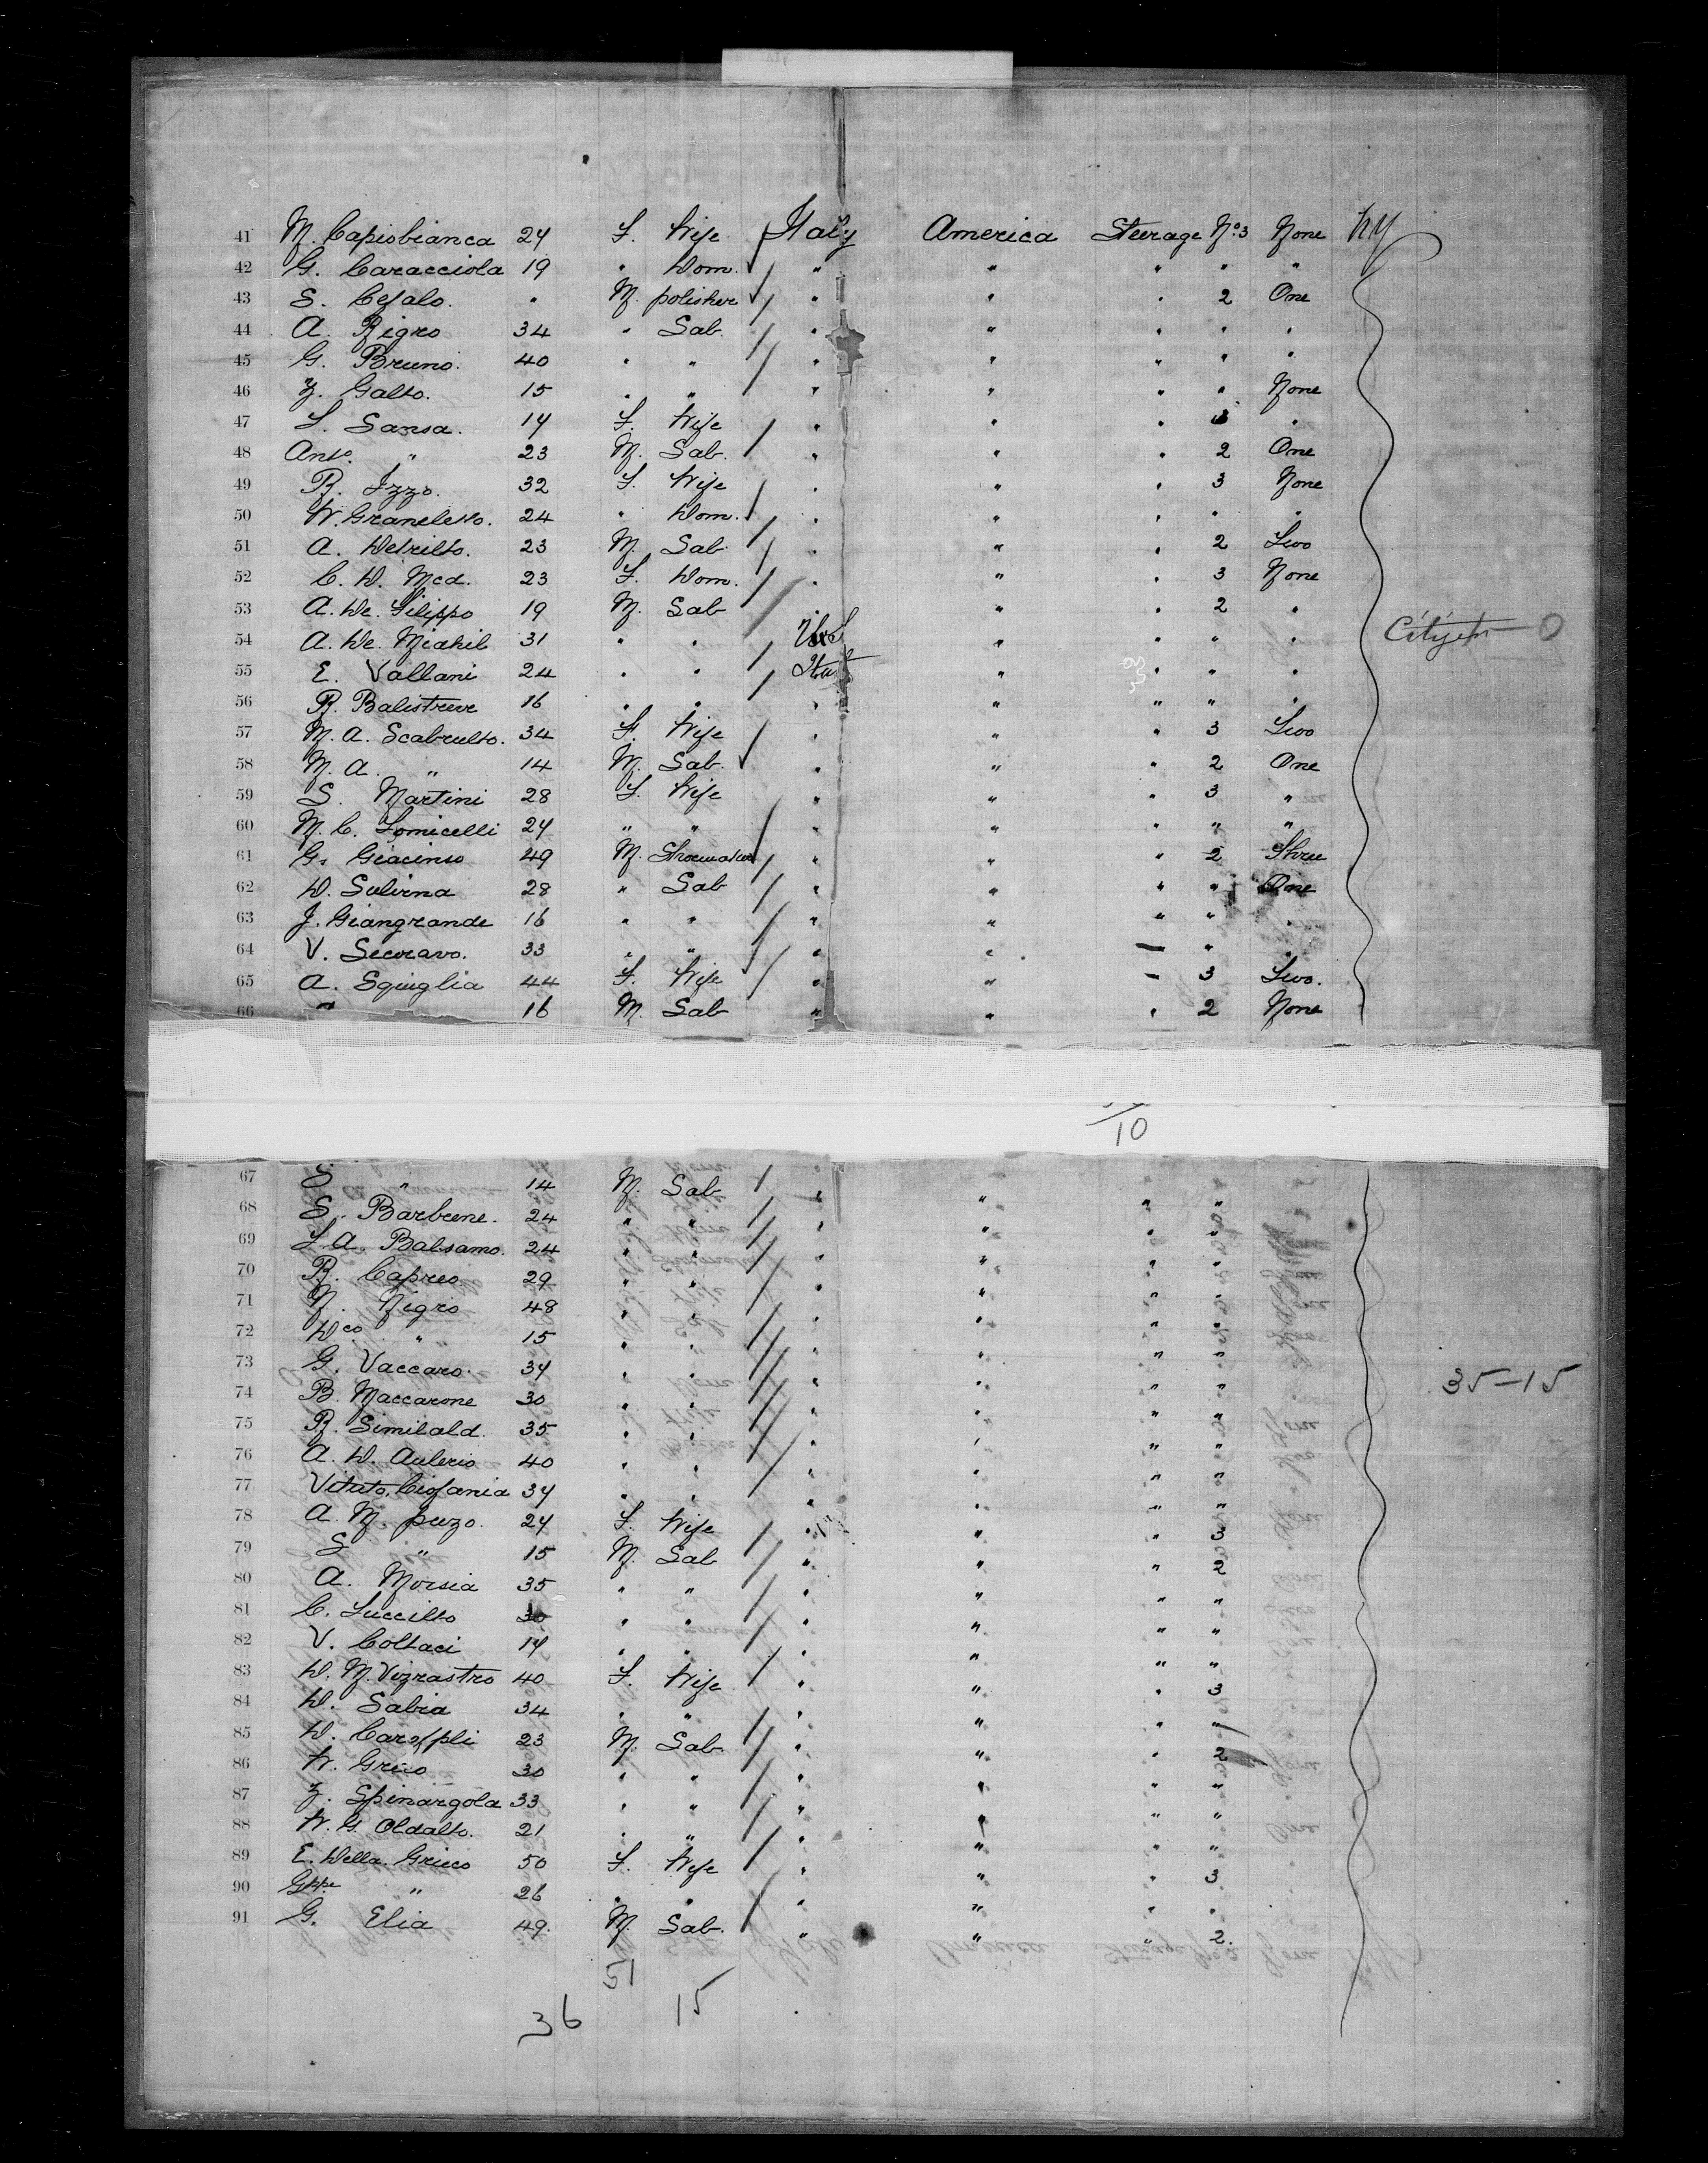 41 M. Capiobianca 24 F. Wife Italy America Steerage No 3 None NY
42 G. Caracciola 19 " Dom. " " " " "
43 S. Cefalo. " M. polisher " " " 2 One
44 A. Nigro 34 " Lab. " " " " "
45 G. Bruno. 40 " " " " " " "
46 Z. Galto. 15 " " " " " " None
47 L. Sansa. 14 F. Wife " " " 3 "
48 Anto. " 23 M. Lab. " " " 2 One
49 R. Izzo. 32 F. Wife " " " 3 None
50 24 " Dom. " " " " "
51 A. 23 M. Lab. " " " 2 Two
52 C. D. 23 F. Dom. " " " 3 None
53 A. De. Filippo 19 M. Lab " " 2 "
54 A. De. 31 " " " " " " Citizen — 0
55 E. Vallani 24 " " " " " "
56 R. Balistreve 16 " " " " " " "
57 M. A. 34 F. Wife " " " 3 Two
58 M. A. " 14 M. Lab. " " " 2 One
59 S. Martini 28 F. Wife " " " 3 "
60 M. C. Tomicelli 24 " " " " " " "
61 G. Giacinso 49 M. Shoemaker " " " 2 Three
62 D. 28 " Lab " " " " One
63 J. Giangrande 16 " " " " " " "
64 V. 33 " " " " — " "
65 A. Squiglia 44 F. Wife " " – 3 Two.
66 " 16 M. Lab " " " 2 None
10
67 S " 14 M. Lab " " " "
68 S. Barbene. 24 " " " " " "
69 L. A. Balsamo. 24 " " " " " "
70 R. Capreo 29 " " " " " "
71 N. Nigro 48 " " " " " "
72 Dco " 15 " " " " " "
73 G. Vaccaro. 34 " " " " " "
74 B. Maccarone 30 " " " " " " 35 – 15
75 R. Similald. 35 " " " " " "
76 A. D. Aulerio 40 " " " " " "
77 Vitato. Ciofania 34 " " " " " "
78 A. M. 24 F. Wife " " " 3
79 S " 15 M. Lab " " " 2
80 A. Morsia 35 " " " " " "
81 C. 30 " " " " " "
82 V. Coltaci 14 " " " " " "
83 D. M. Vizrastro 40 F. Wife " " " 3
84 D. Sabia 34 " " " " " "
85 D. 23 M. Lab " " " 2
86 30 " " " " " "
87 Z. Spinargola 33 " " " " " "
88 21 " " " " " "
89 E. Della Grieco 50 F. Wife " " " 3
90 Gppe " 26 " " " " " "
91 G. Elia 49. M. Lab. " " " 2.
51
36 15